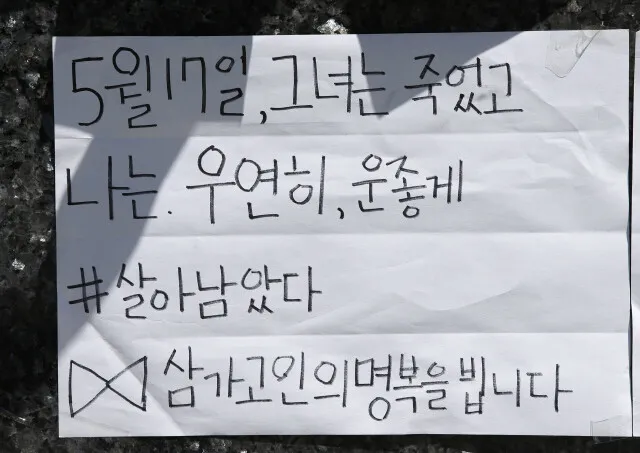 5월17일,그녀는 죽었고
나는. 우연히, 운좋게
#살아남았다
삼가고인의명복을빕니다